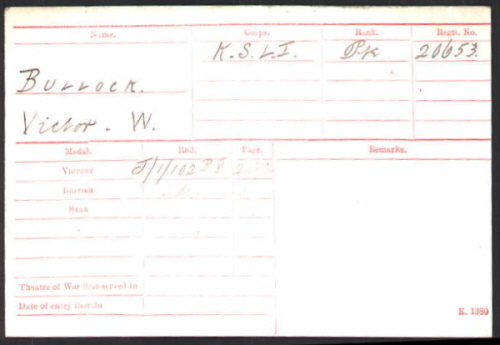 Name. Corps. Rank. Regtl. No.
K.S.L.I. Pte 20653
BULLOCK.
Victor. W.
Medal. Roll. Page. Remarks.
VICTORY J/1/102 B8
BRITISH
STAR
Theatre of War first served in
Date of entry therein
K. 1380